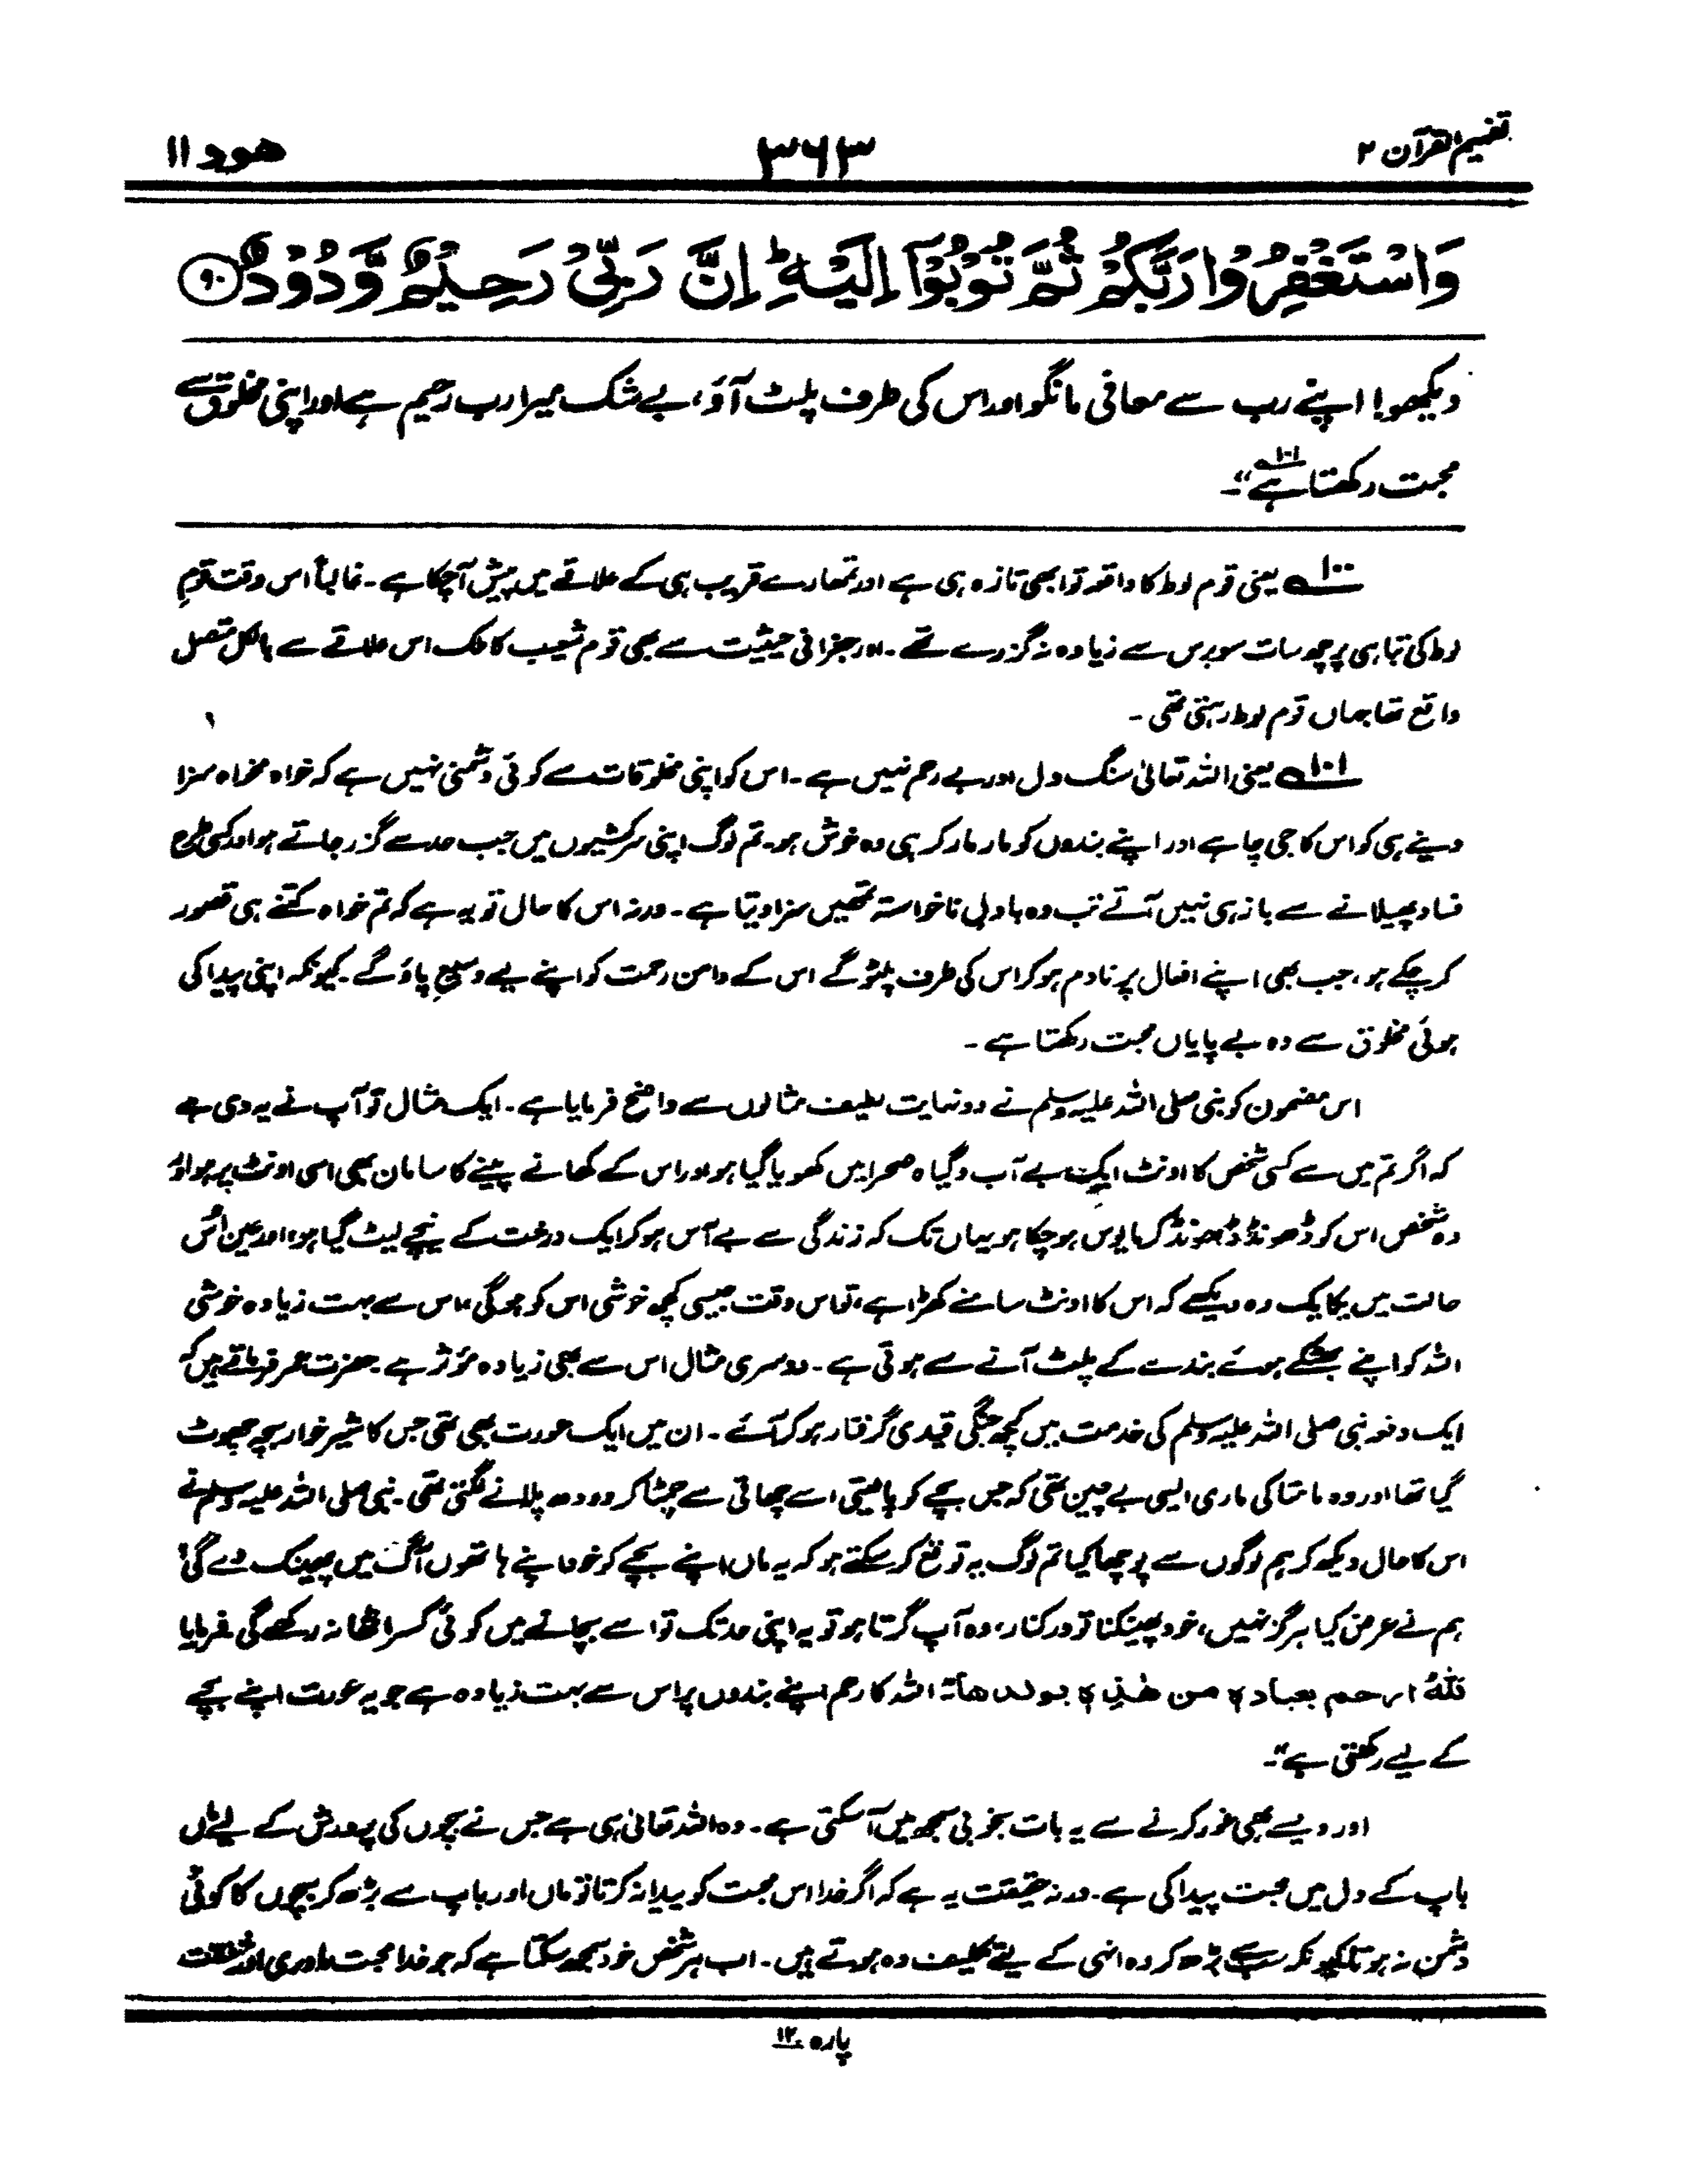 تفہیم القرآن ۲
۳۶۳
ھود ۱۱
وَاسْتَغْفِرُوْا رَبَّكُمْ ثُمَّ تُوْبُوْٓا اِلَيْهِ ؕ اِنَّ رَبِّيْ رَحِيْمٌ وَّدُوْدٌ ﴿۹۰﴾
دیکھو! اپنے رب سے معافی مانگو اور اس کی طرف پلٹ آؤ، بے شک میرا رب رحیم ہے اور اپنی مخلوق سے
محبت رکھتا ہے۱۰۱؎"۔
۱۰۰؎ یعنی قوم لوط کا واقعہ تو ابھی تازہ ہی ہے اور تمھارے قریب ہی کے علاقے میں پیش آچکا ہے۔ غالباً اس وقت قومِ
لوط کی تباہی پر چھ سات سو برس سے زیادہ نہ گزرے تھے۔ اور جغرافی حیثیت سے بھی قوم شعیب کا ملک اس علاقے سے بالکل متصل
واقع تھا جہاں قوم لوط رہتی تھی۔
۱۰۱؎ یعنی اللہ تعالیٰ سنگ دل اور بے رحم نہیں ہے۔ اس کو اپنی مخلوقات سے کوئی دشمنی نہیں ہے کہ خواہ مخواہ سزا
دینے ہی کو اس کا جی چاہے اور اپنے بندوں کو مار مار کر ہی وہ خوش ہو۔ تم لوگ اپنی سرکشیوں میں جب حد سے گزر جاتے ہو اور کسی طرح
فساد پھیلانے سے باز ہی نہیں آتے تب وہ بادلِ ناخواستہ تمھیں سزا دیتا ہے۔ ورنہ اس کا حال تو یہ ہے کہ تم خواہ کتنے ہی قصور
کر چکے ہو، جب بھی اپنے افعال پر نادم ہو کر اس کی طرف پلٹو گے اس کے دامن رحمت کو اپنے لیے وسیع پاؤ گے۔ کیونکہ اپنی پیدا کی
ہوئی مخلوق سے وہ بے پایاں محبت رکھتا ہے۔
اس مضمون کو نبی صلی اللہ علیہ وسلم نے دو نہایت لطیف مثالوں سے واضح فرمایا ہے۔ ایک مثال تو آپ نے یہ دی ہے
کہ اگر تم میں سے کسی شخص کا اونٹ ایک بے آب و گیاہ صحرا میں کھویا گیا ہو اور اس کے کھانے پینے کا سامان بھی اسی اونٹ پر ہو اور
وہ شخص اس کو ڈھونڈ ڈھونڈ کر مایوس ہو چکا ہو یہاں تک کہ زندگی سے بے آس ہو کر ایک درخت کے نیچے لیٹ گیا ہو، اور عین اُس
حالت میں یکایک وہ دیکھے کہ اس کا اونٹ سامنے کھڑا ہے، تو اس وقت جیسی کچھ خوشی اس کو ہوگی، اس سے بہت زیادہ خوشی
اللہ کو اپنے بھٹکے ہوئے بندے کے پلٹ آنے سے ہوتی ہے۔ دوسری مثال اس سے بھی زیادہ مؤثر ہے۔ حضرت عمر فرماتے ہیں کہ
ایک دفعہ نبی صلی اللہ علیہ وسلم کی خدمت میں کچھ جنگی قیدی گرفتار ہو کر آئے۔ ان میں ایک عورت بھی تھی جس کا شیر خوار بچہ چھوٹ
گیا تھا اور وہ مامتا کی ماری ایسی بے چین تھی کہ جس بچے کو پا لیتی اسے چھاتی سے چمٹا کر دودھ پلانے لگتی تھی۔ نبی صلی اللہ علیہ وسلم نے
اس کا حال دیکھ کر ہم لوگوں سے پوچھا کیا تم لوگ یہ توقع کر سکتے ہو کہ یہ ماں اپنے بچے کو خود اپنے ہاتھوں آگ میں پھینک دے گی؟
ہم نے عرض کیا ہرگز نہیں، خود پھینکنا تو درکنار، وہ آپ گرتا ہو تو یہ اپنی حد تک تو اسے بچانے میں کوئی کسر اٹھا نہ رکھے گی۔ فرمایا
فللّٰہُ ارحم بعبادہ من ھٰذہ بولدھا۔ "اللہ کا رحم اپنے بندوں پر اس سے بہت زیادہ ہے جو یہ عورت اپنے بچے
کے لیے رکھتی ہے"۔
اور ویسے بھی غور کرنے سے یہ بات بخوبی سمجھ میں آسکتی ہے۔ وہ اللہ تعالیٰ ہی ہے جس نے بچوں کی پرورش کے لیے ماں
باپ کے دل میں محبت پیدا کی ہے۔ ورنہ حقیقت یہ ہے کہ اگر خدا اس محبت کو پیدا نہ کرتا تو ماں اور باپ سے بڑھ کر بچوں کا کوئی
دشمن نہ ہوتا کیونکہ سب سے بڑھ کر وہ انہی کے لیے تکلیف دہ ہوتے ہیں۔ اب ہر شخص خود سمجھ سکتا ہے کہ جو خدا محبت مادری اور شفقت
پارہ ۱۲